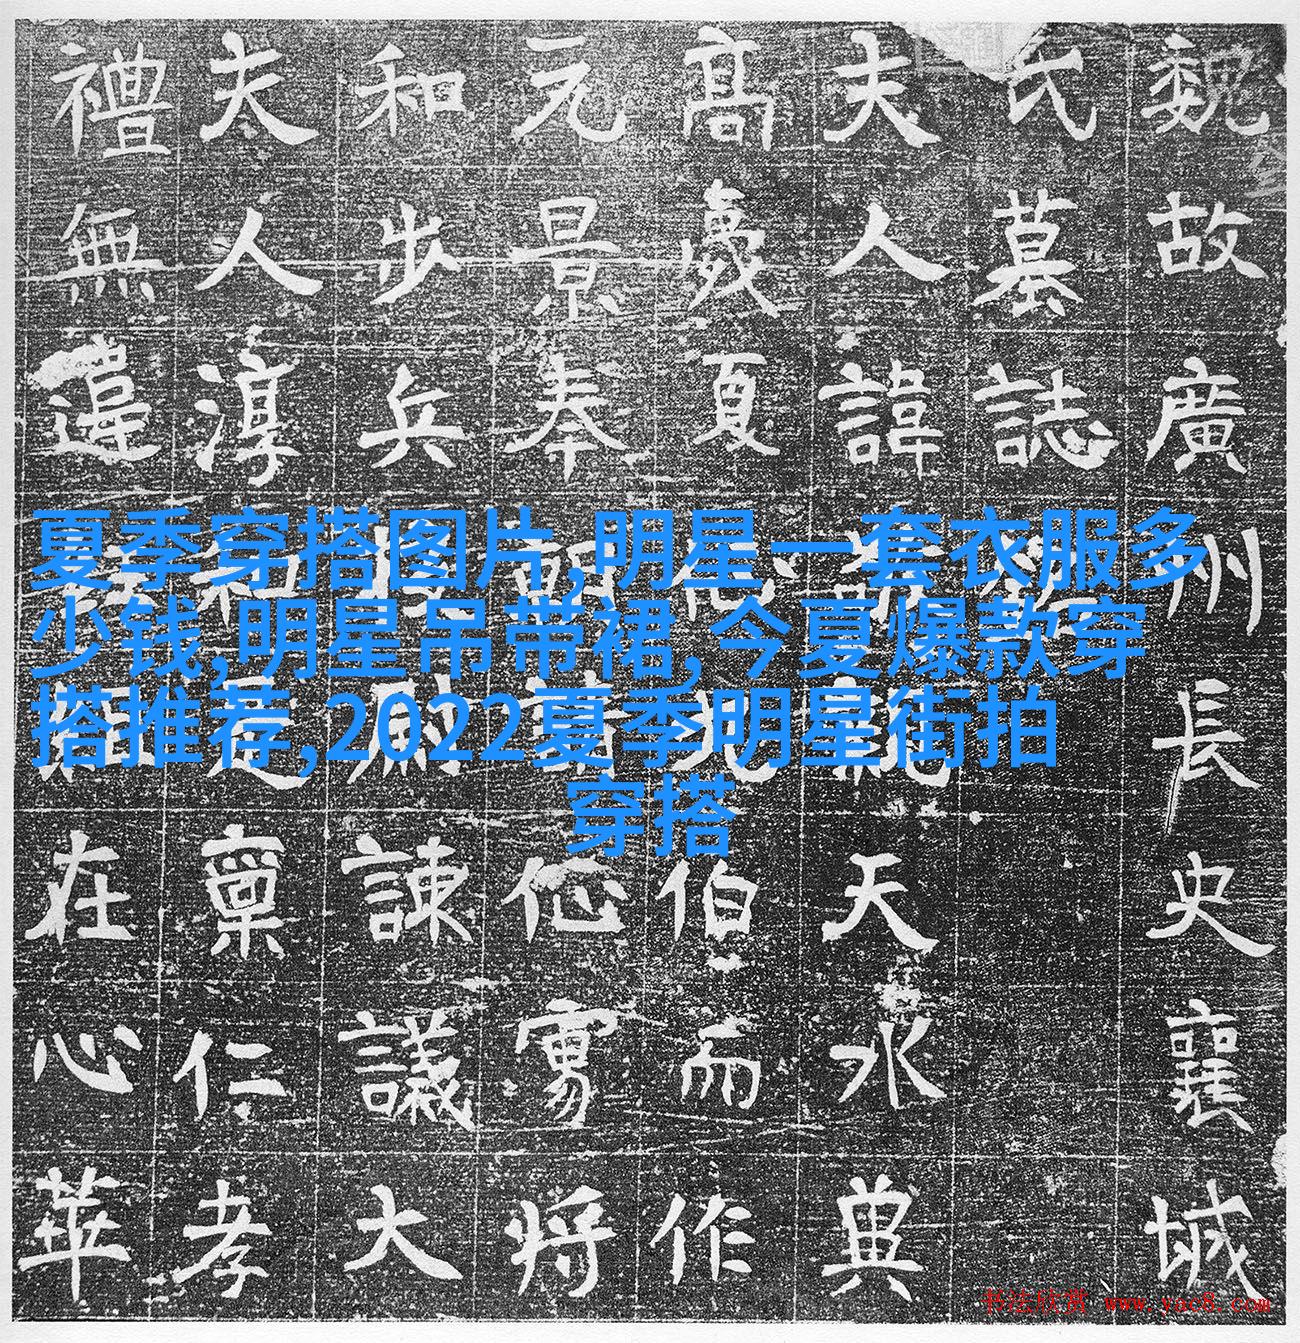 夏季穿搭图片,明星一套衣服多
少钱,明星吊带裙,今夏爆款穿
搭推荐,2022夏季明星街拍
穿搭
魏故廣州長史襄城
氏墓誌
夫人諱天水
高夏伯而作
元景奉將
和步兵尉諫議大
夫人淳和稟仁孝
禮無違在心華
书法欣赏 www.yac8.com